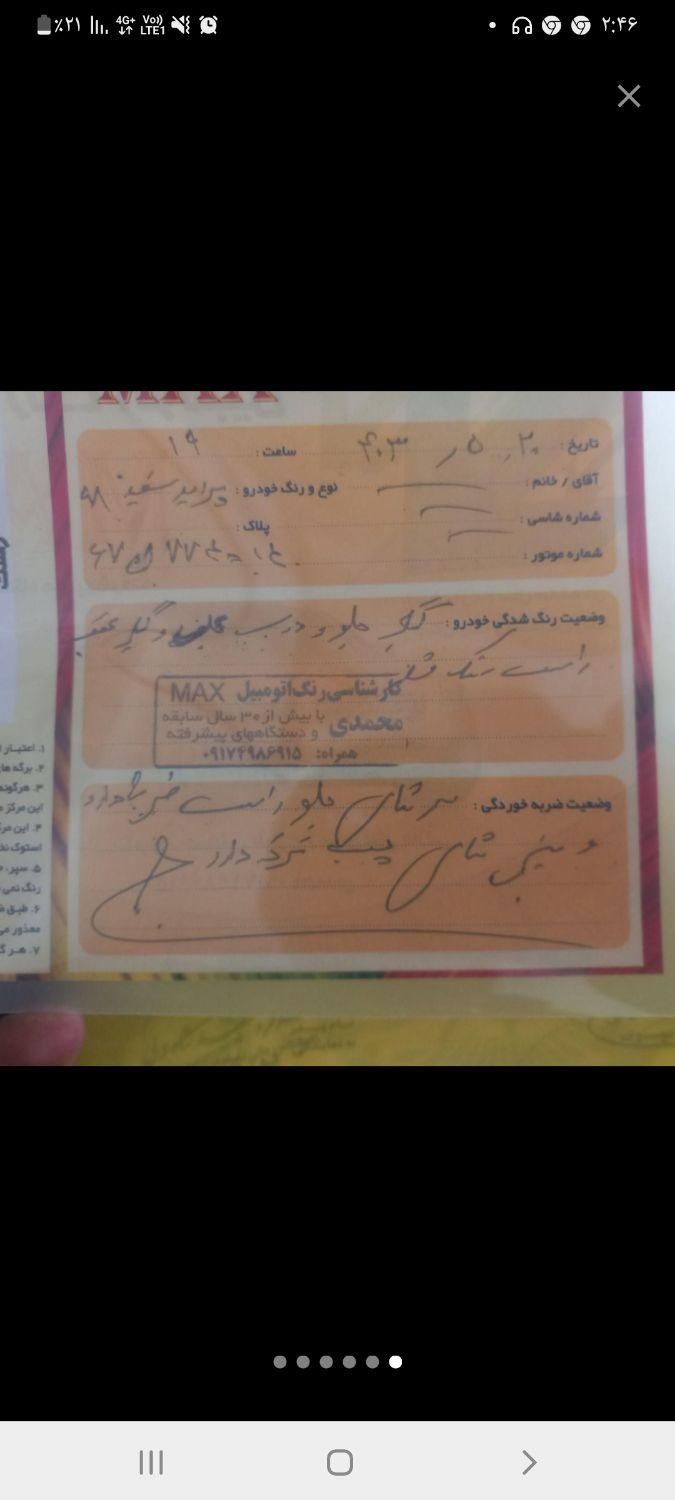 ٪۲۱ 4G+ Vo)) LTE1 ۲:۴۶
MAX
تاریخ : ۲۰ ر ۵ ر ۴۰۳ ساعت : ۱۹
آقای / خانم : نوع و رنگ خودرو : پراید سفید ۹۸
شماره شاسی :
پلاک :
شماره موتور :
وضعیت رنگ شدگی خودرو : گلگیر جلو و درب و گلگیر عقب
راست رنگ
کارشناسی رنگ اتومبیل MAX
محمدی با بیش از ۳۰ سال سابقه
و دستگاههای پیشرفته
همراه: ۰۹۱۷۴۹۸۶۹۱۵
وضعیت ضربه خوردگی : سر شاسی جلو راست ضربه دارد
و سینی شاسی چپ ترک دارد
۱. اعتبار
۲. برگه ها
۳. هرگونه
این مرکز
۴. این مرک
استوک
۵. سپر،
رنگ نمی
۶. طبق
معذور می
۷. هر گ